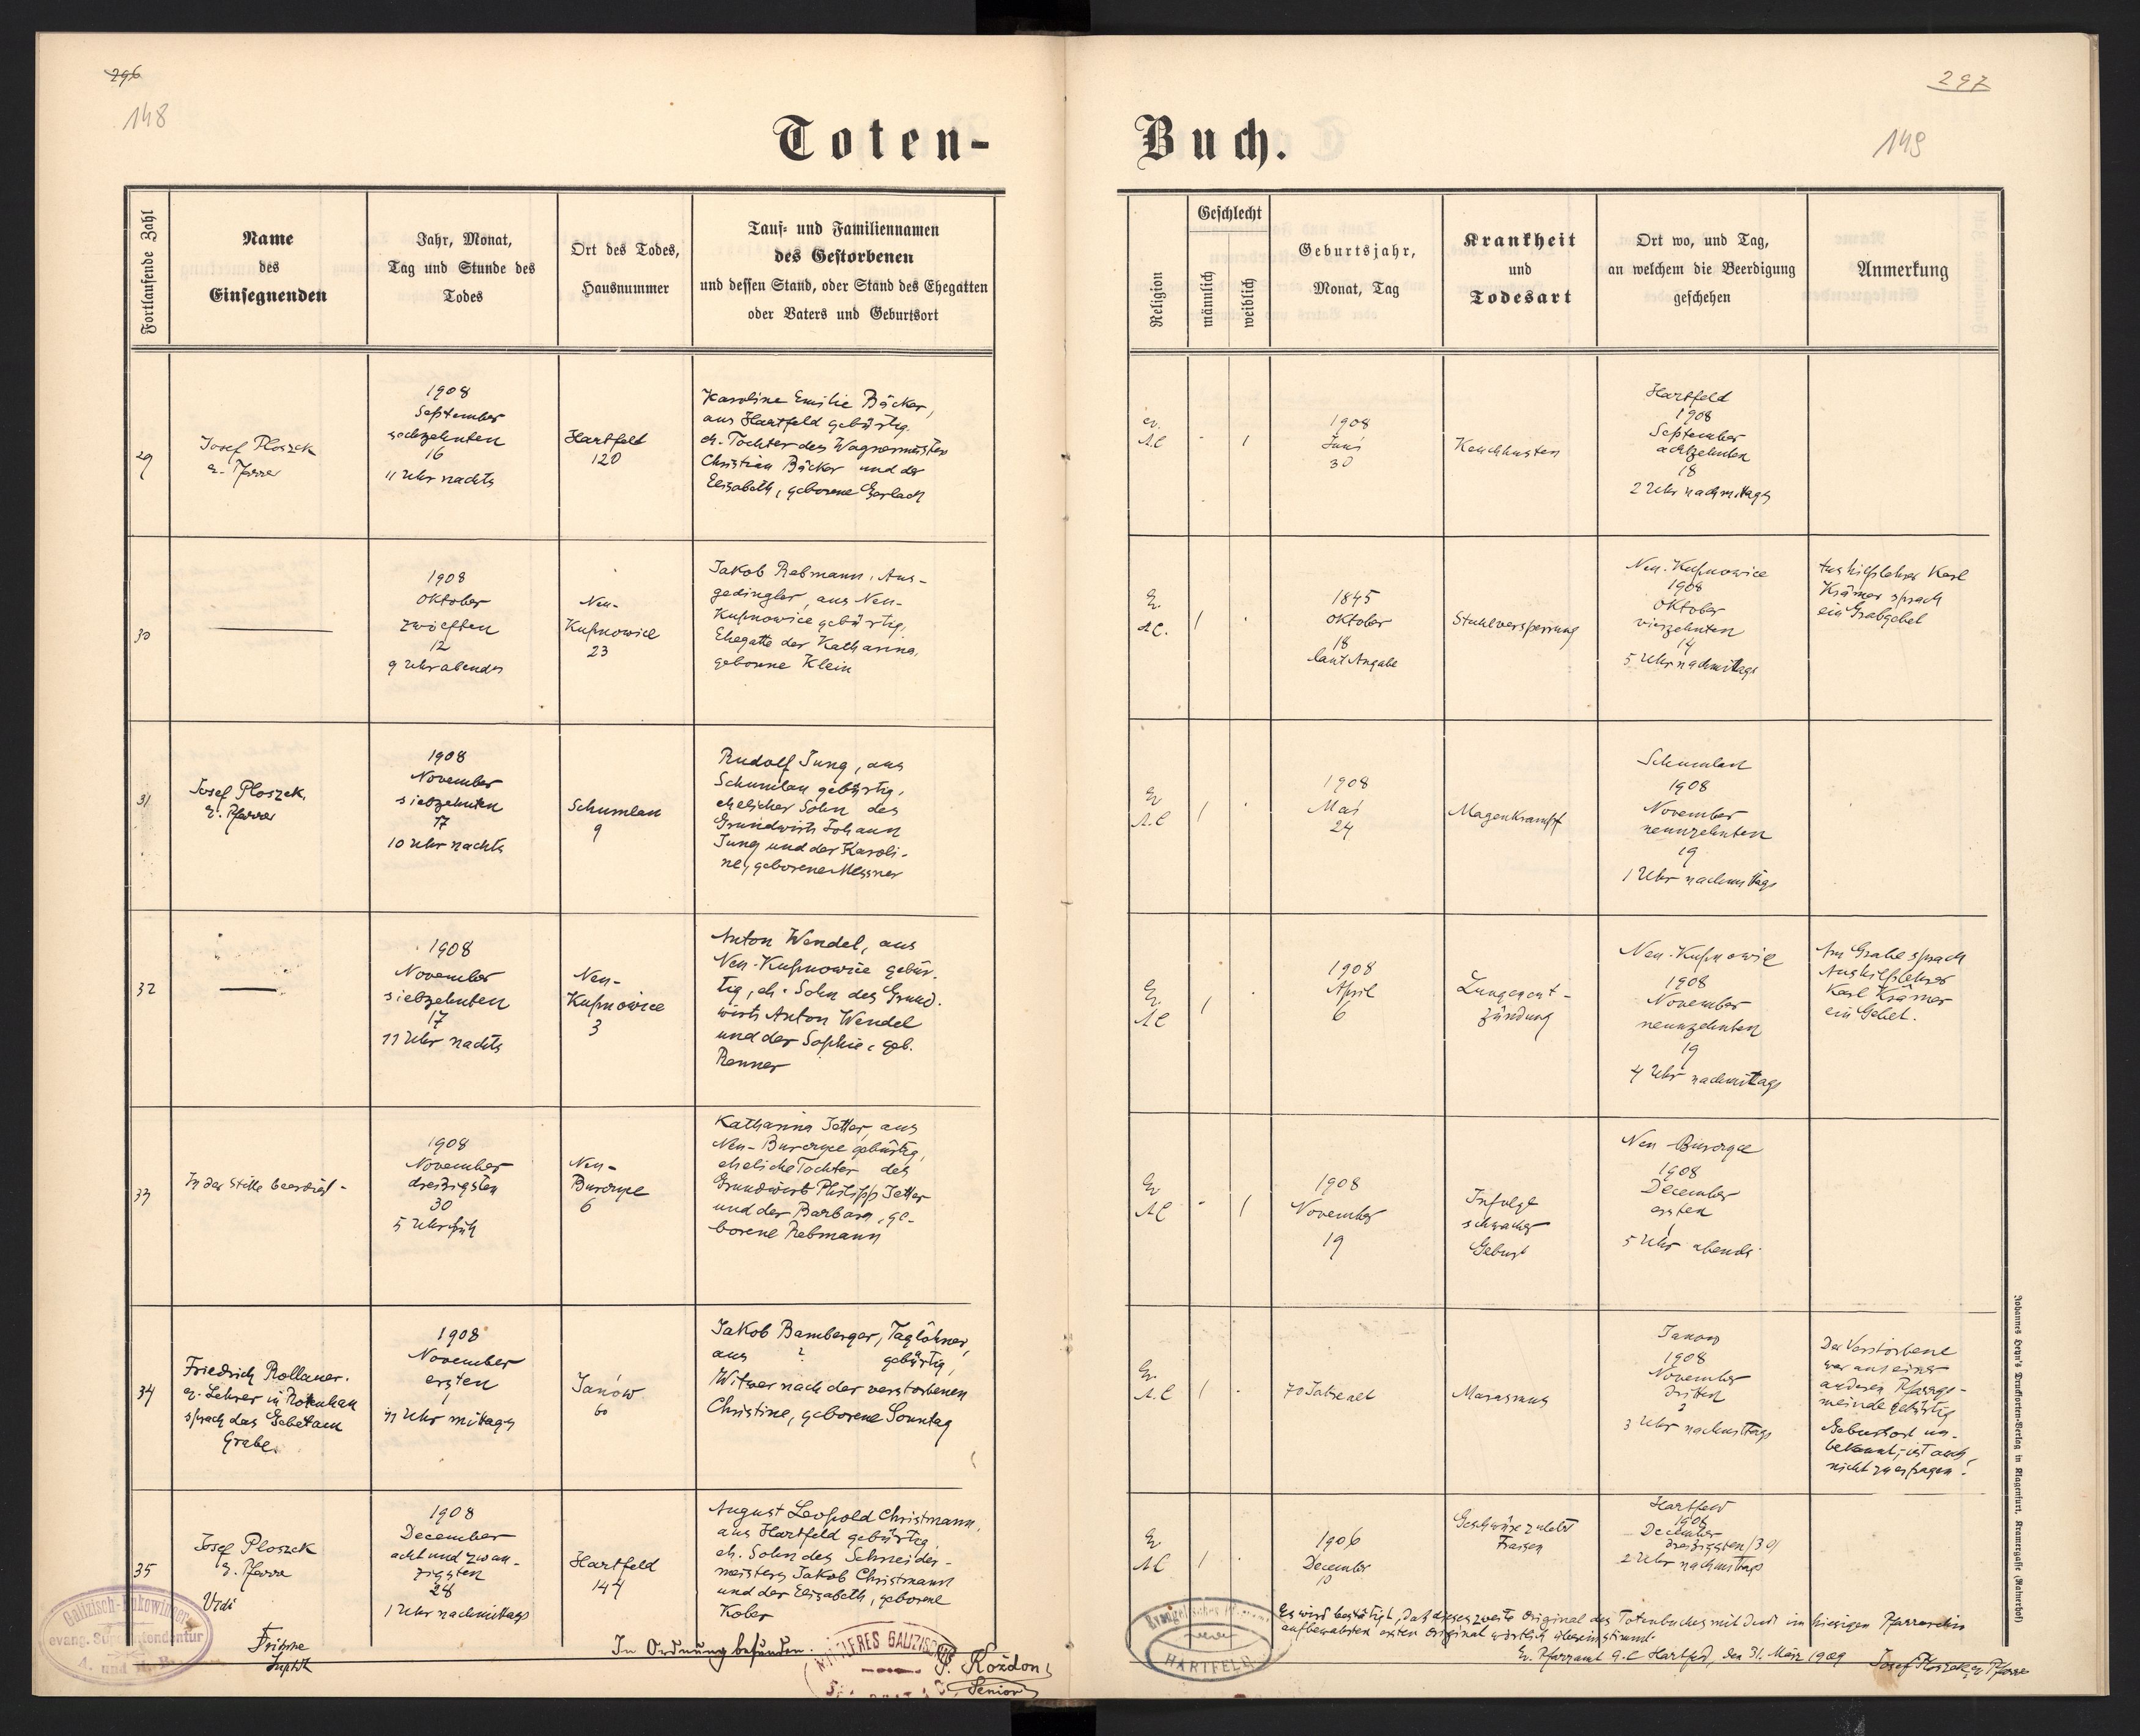 296
148
Toten-
Fortlaufende Zahl
Name
des
Einsegnenden
Jahr, Monat,
Tag und Stunde des
Todes
Ort des Todes,
Hausnummer
Tauf- und Familiennamen
des Gestorbenen
und dessen Stand, oder Stand des Ehegatten
oder Vaters und Geburtsort
29
Josef Ploszek
ev. Pfarrer
1908
September
sechzehnten
16
11 Uhr nachts
Hartfeld
120
Karoline Emilie Bäcker,
aus Hartfeld gebürtig.
eh. Tochter des Wagnermeisters
Christian Bäcker und der
Elisabeth, geborene Gerlach
30
1908
Oktober
zwölften
12
9 Uhr abends
Neu-
Kupnowice
23
Jakob Rebmann, Aus-
gedingler, aus Neu-
Kupnowice gebürtig,
Ehegatte der Katharina,
geborene Klein
31
Josef Ploszek,
ev. Pfarrer
1908
November
siebzehnten
17
10 Uhr nachts
Schumlau
9
Rudolf Jung, aus
Schumlau gebürtig,
ehelicher Sohn des
Grundwirts Johann
Jung und der Karoli-
ne, geborene Messner
32
1908
November
siebzehnten
17
11 Uhr nachts
Neu-
Kupnowice
3
Anton Wendel, aus
Neu-Kupnowice gebür-
tig, eh. Sohn des Grund-
wirts Anton Wendel
und der Sophie, geb.
Renner
33
In der Stille beerdigt-
1908
November
dreißigsten
30
5 Uhr früh
Neu-
Burczyce
6
Katharina Jetter, aus
Neu-Burczyce gebürtig,
eheliche Tochter des
Grundwirts Philipp Jetter
und der Barbara, ge-
borene Rebmann
34
Friedrich Rollauer.
ev. Lehrer in Rotenhan
sprach das Gebet am
Grabe.
1908
November
ersten
1
11 Uhr mittags
Janów
60
Jakob Bamberger, Taglöhner,
aus ? gebürtig,
Witwer nach der verstorbenen
Christine, geborene Sonntag
35
Josef Ploszek
ev. Pfarrer
1908
December
acht und zwan-
zigsten
28
1 Uhr nachmittags
Hartfeld
144
August Leopold Christmann,
aus Hartfeld gebürtig,
eh. Sohn des Schneider-
meisters Jakob Christmann
und der Elisabeth, geborene
Kober
Vidi
Fritsche
Suptdt
Galizisch-Bukowiner
evang. Superintendentur
A. und H. B.
In Ordnung befunden.
MITTLERES GALIZISCHES
P. Roždon
Senior
297
149
Buch.
Religion
Geschlecht
männlich
weiblich
Geburtsjahr,
Monat, Tag
Krankheit
und
Todesart
Ort wo, und Tag,
an welchem die Beerdigung
geschehen
Anmerkung
ev.
A.C
-
1
1908
Juni
30
Keuchhusten
Hartfeld
1908
September
achtzehnten
18
2 Uhr nachmittags
Ev.
A.C.
1
1845
Oktober
18
laut Angabe
Stuhlversperrung
Neu-Kupnowice
1908
Oktober
vierzehnten
14
5 Uhr nachmittags
Aushilfslehrer Karl
Krämer sprach
ein Grabgebet
Ev
A.C
1
1908
Mai
24
Magenkrampf
Schumlau
1908
November
neunzehnten
19
1 Uhr nachmittags
Ev.
AC
1
1908
April
6
Lungenent-
zündung
Neu-Kupnowice
1908
November
neunzehnten
19
4 Uhr nachmittags
Am Grabe sprach
Aushilfslehrer
Karl Krämer
ein Gebet.
Ev
AC
-
1
1908
November
19
Infolge
schwacher
Geburt
Neu Burczyce
1908
December
ersten
1
5 Uhr abends
Ev.
A.C
1
70 Jahre alt
Marasmus
Janow
1908
November
dritten
3
3 Uhr nachmittags
Der Verstorbene
war aus einer
anderen Pfarrge-
meinde gebürtig
Geburtsort un-
bekannt, ist auch
nicht zu erfragen.
Ev
AC
1
1906
December
10
Geschwüre zuletzt
Fraisen
Hartfeld
1908
December
dreißigsten /30/
2 Uhr nachmittags
Es wird bestätigt, daß dieses zweite Original des Totenbuches mit dem im hiesigen Pfarrarchiv
aufbewahrten ersten Original wörtlich übereinstimmt.
Ev. Pfarramt A.C Hartfeld, den 31. März 1909
Josef Ploszek, ev. Pfarrer
HARTFELD
Johannes Heyn's Drucksorten-Verlag in Klagenfurt, Kramergasse (Rathreihof)